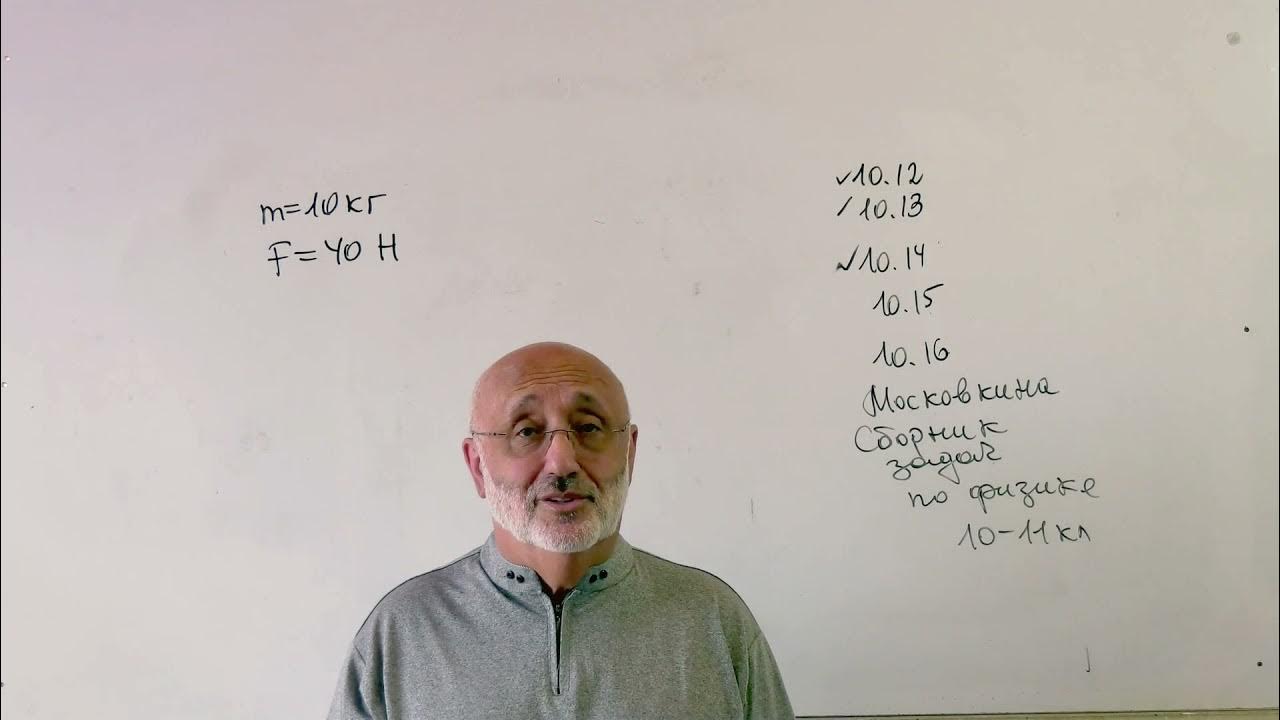 m=10кг
F=40 Н
✓10.12
✓10.13
✓10.14
10.15
10.16
Московкина
Сборник
задач
по физике
10-11кл